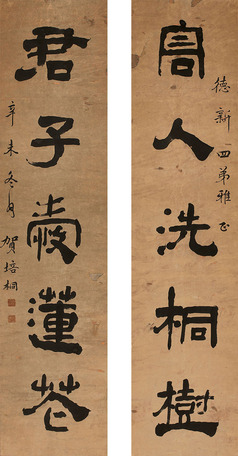 高人洗桐樹
德新四弟雅正
君子愛蓮花
辛未冬月
賀培桐